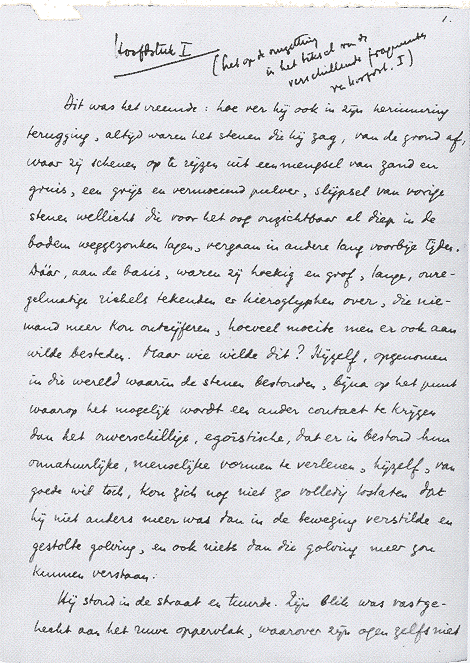 1.
Hoofdstuk I
(let op de omzetting
in het tiksel van de
verschillende fragmenten
van Hoofdst. I)
Dit was het vreemde: hoe ver hij ook in zijn herinnering
terugging, altijd waren het stenen die hij zag, van de grond af,
waar zij schenen op te rijzen uit een mengsel van zand en
gruis, een grijs en vermoeiend pulver, slijpsel van vorige
stenen wellicht die voor het oog onzichtbaar al diep in de
bodem weggezonken lagen, vergaan in andere lang voorbije tijden.
Dáár, aan de basis, waren zij hoekig en grof, lange, onre-
gelmatige richels tekenden er hieroglyphen over, die nie-
mand meer kon ontcijferen, hoeveel moeite men er ook aan
wilde besteden. Maar wie wilde dit? Hijzelf, opgenomen
in die wereld waarin de stenen bestonden, bijna op het punt
waarop het mogelijk wordt een ander contact te krijgen
dan het onverschillige, egoïstische, dat er in bestond hun
onnatuurlijke, menselijke vormen te verlenen, hijzelf, van
goede wil toch, kon zich nog niet zo volledig loslaten dat
hij niet anders meer was dan in de beweging verstilde en
gestolte golving, en ook niets dan die golving meer zou
kunnen verstaan.
Hij stond in de straat en tuurde. Zijn blik was vastge-
hecht aan het ruwe oppervlak, waarover zijn ogen zelfs niet